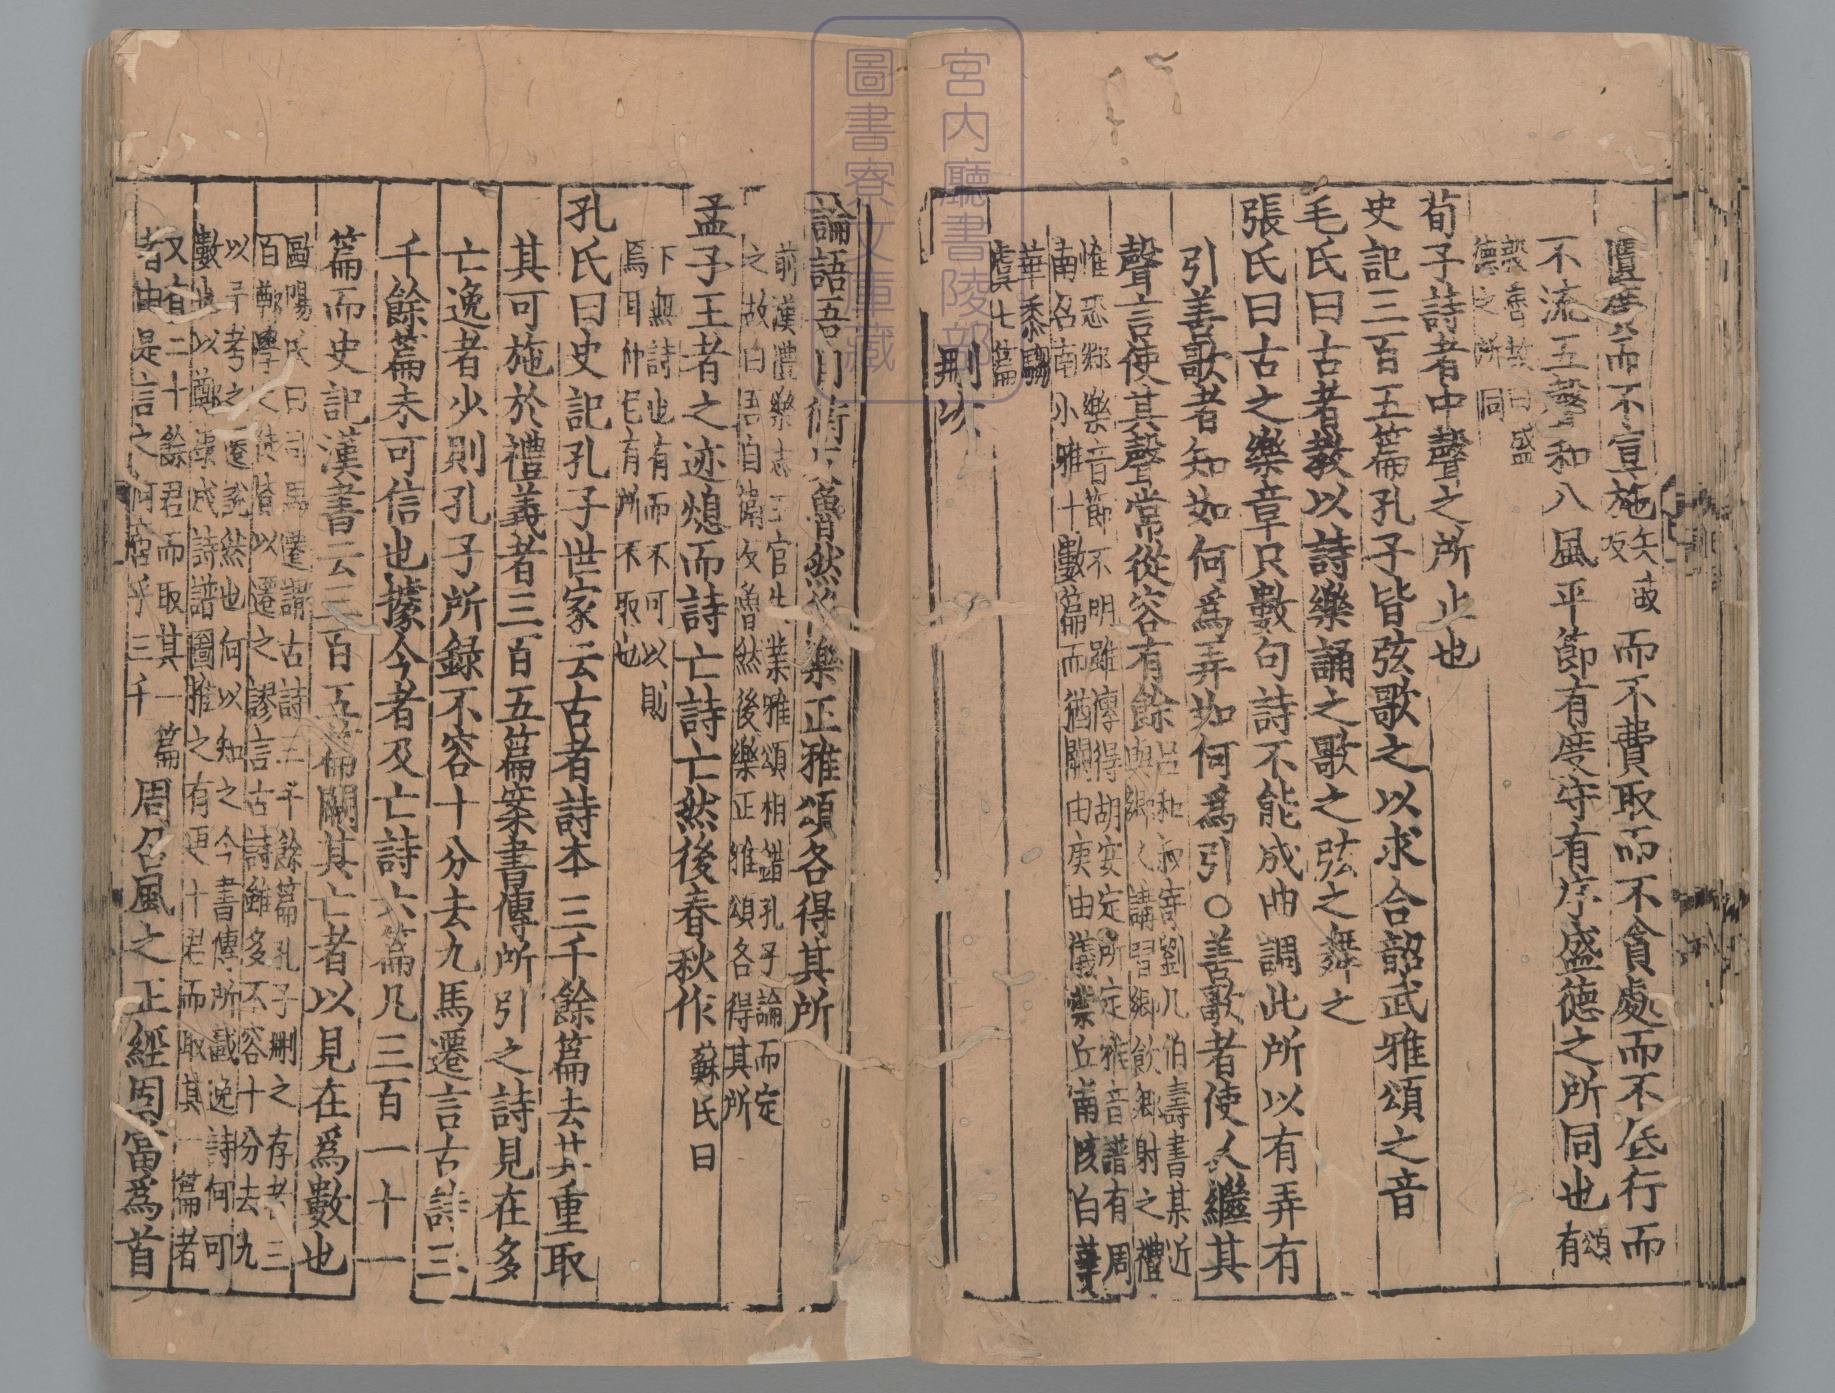 匱廣而不宣施 矢豉反 而不費取而不貪處而不厎行而
不流五聲和八風平節有度守有序盛德之所同也 頌有
殷魯故曰盛德之所同
荀子詩者中聲之所止也
史記三百五篇孔子皆弦歌之以求合韶武雅頌之音
毛氏曰古者教以詩樂誦之歌之弦之舞之
張氏曰古之樂章只數句詩不能成曲調此所以有弄有
引善歌者知如何爲弄如何爲引○善歌者使人繼其
聲言使其聲常從容有餘 呂和叔寄劉几伯壽書某近與鄉人講習鄉飲鄉射之禮
惟恐鄉樂音節不明雖傳得胡安定所定雅音譜有周
南召南小雅十數篇而猶闕由庚由儀崇丘南陔白華
華黍騶虞七篇
刪次
論語吾自衛反魯然後樂正雅頌各得其所
前漢禮樂志王官失業雅頌相錯孔子論而定
之故曰吾自衛反魯然後樂正雅頌各得其所
孟子王者之迹熄而詩亡詩亡然後春秋作 蘇氏曰
下無詩也有而不可以則
焉耳仲尼有所不取也
孔氏曰史記孔子世家云古者詩本三千餘篇去其重取
其可施於禮義者三百五篇案書傳所引之詩見在多
亡逸者少則孔子所錄不容十分去九馬遷言古詩三
千餘篇未可信也據今者及亡詩六篇凡三百一十一
篇而史記漢書云三百五篇闕其亡者以見在爲數也
歐陽氏曰司馬遷謂古詩三千餘篇孔子刪之存者三
百鄭學之徒皆以遷之謬言古詩雖多不容十分去九
以予考之遷說然也何以知之今書傳所載逸詩何可
數也以鄭康成詩譜圖推之有更十君而取其一篇者
又有二十餘君而取其一篇
者由是言之何啻乎三千
周召風之正經固當爲首
宮内廳書陵部
圖書寮文庫藏